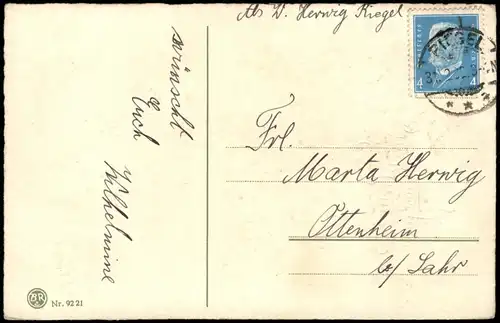 Abs W. Herwig Riegel
wünscht
Euch
Wilhelmine
Frl.
Marta Herwig
Ottenheim
b/ Lahr
4 4
RIEGEL
Nr. 9221